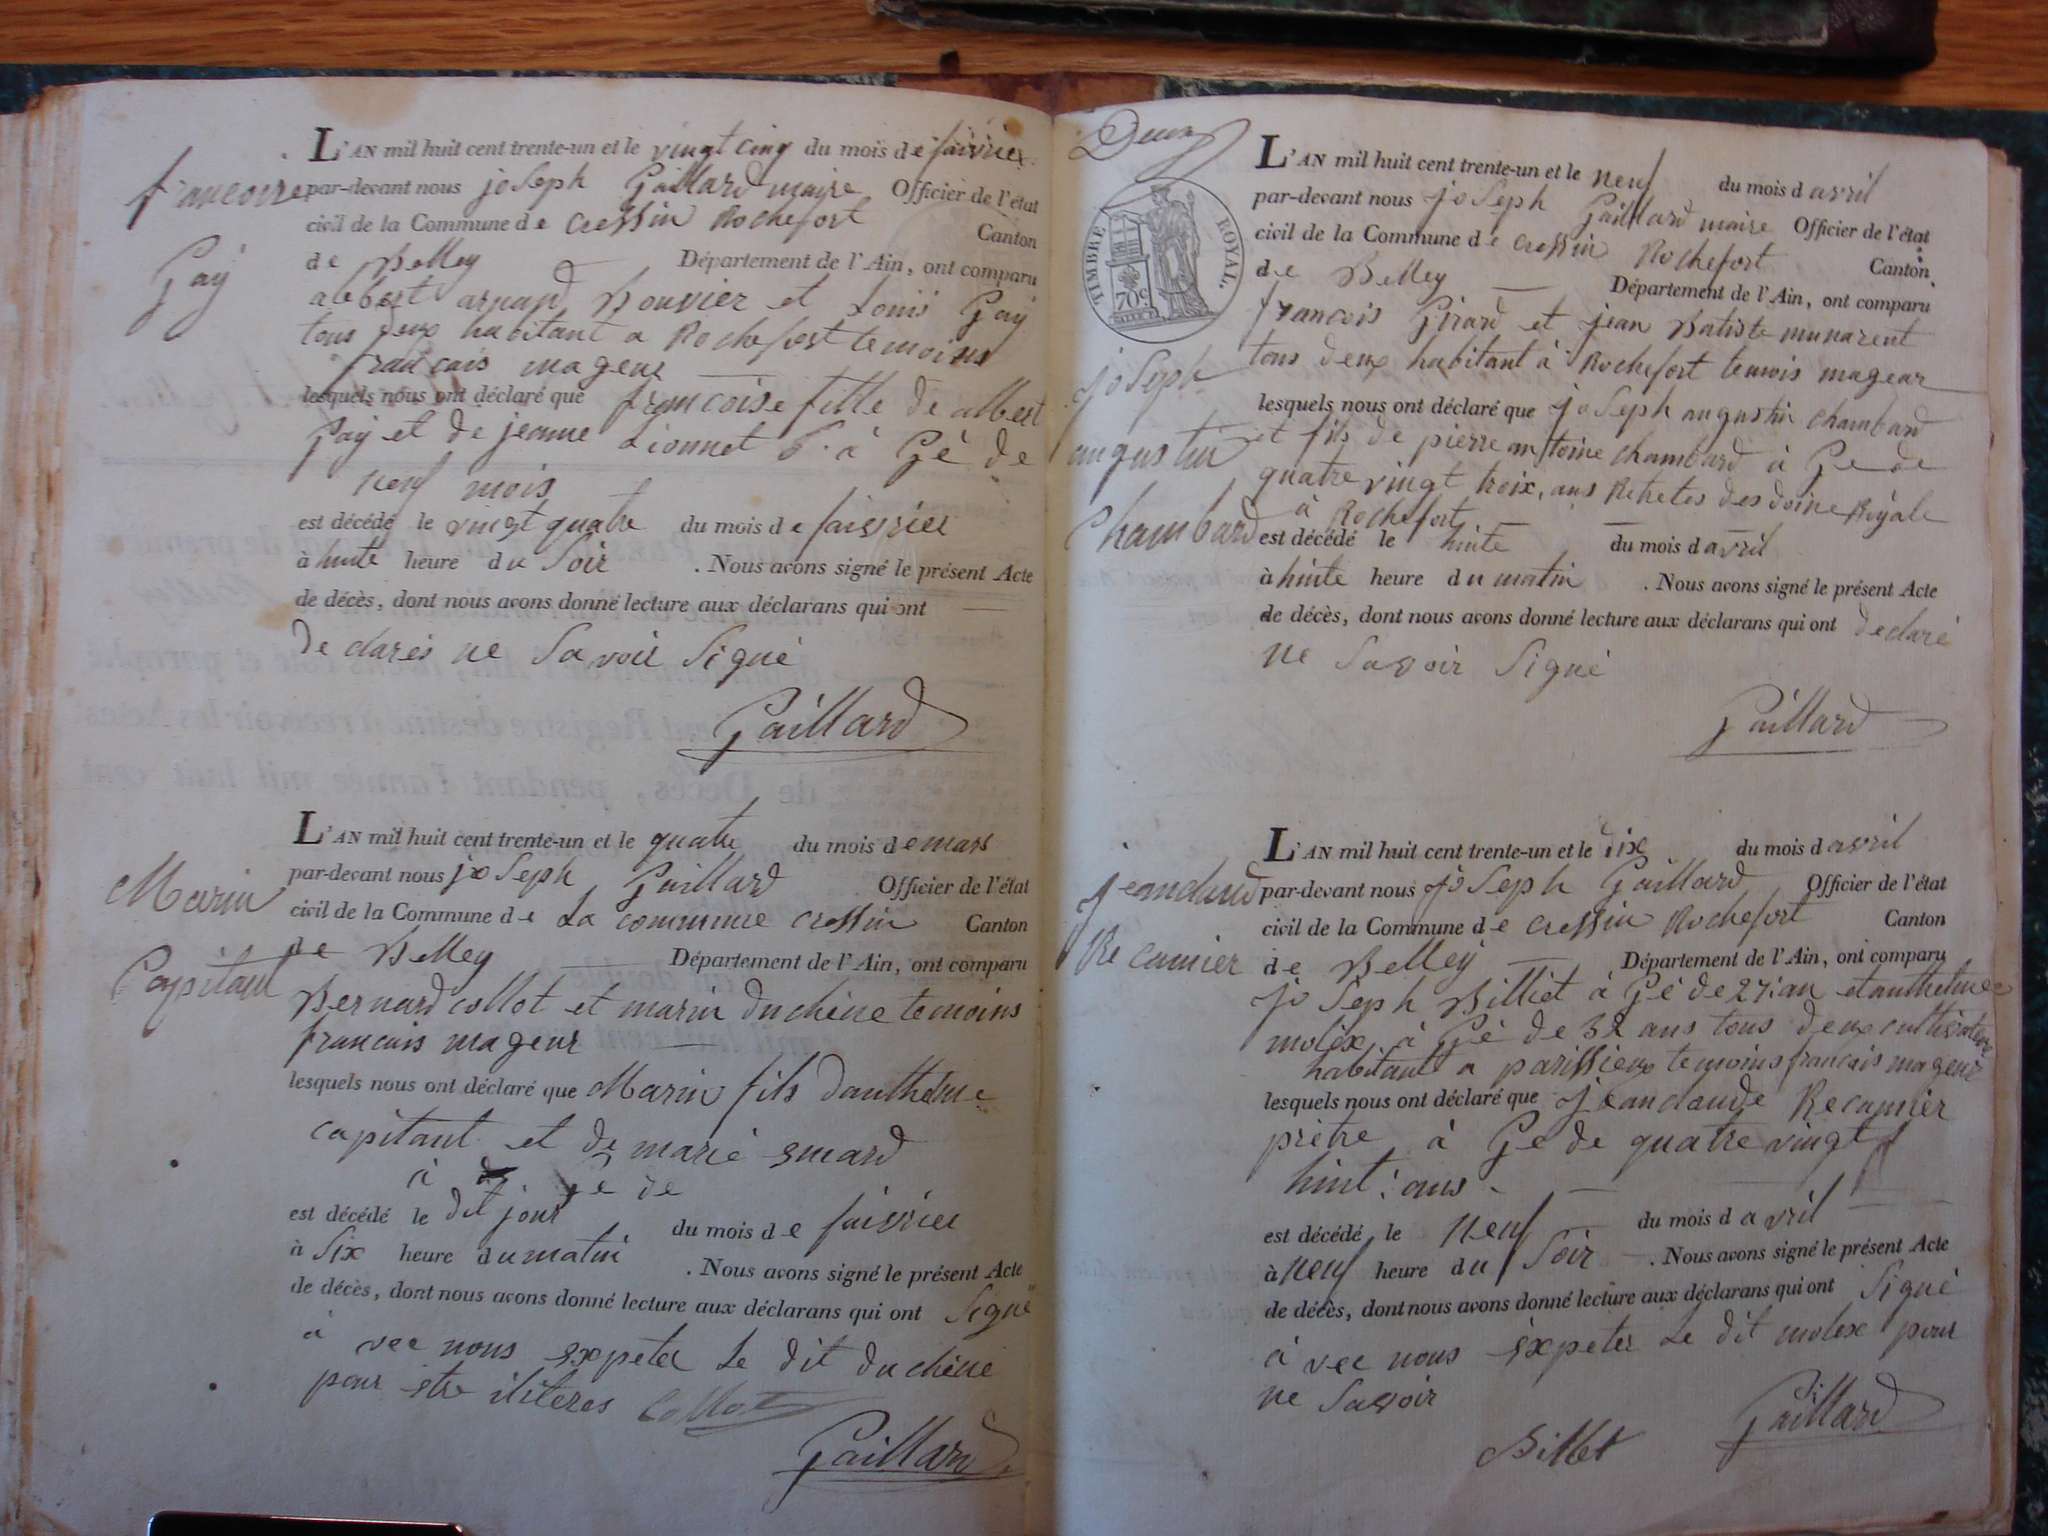 L'AN mil huit cent trente-un et le vingt cinq du mois de faivrier
francoise par-devant nous joseph Gaillard maire Officier de l'état
civil de la Commune de cressin Rochefort Canton
Gay
de Belley Département de l'Ain, ont comparu
albert arnand Bouvier et Louis Gay
tous deux habitant a Rochefort temoins
francais mageur
lesquels nous ont déclaré que francoise fille de albert
Gay et de jeanne Lionnet à Gé de
neuf mois
est décédé le vingt quatre du mois de faivrier
à huite heure du Soir . Nous avons signé le présent Acte
de décès, dont nous avons donné lecture aux déclarans qui ont
declarés ne Savoir Signé
Gaillard
L'AN mil huit cent trente-un et le quatre du mois de mars
par-devant nous joseph Gaillard Officier de l'état
Marin
civil de la Commune de La commune cressin Canton
de Belley Département de l'Ain, ont comparu
Capitant
Bernard collot et marin duchêne temoins
francais mageur
lesquels nous ont déclaré que Marin fils danthelme
capitant et de marie emard
à Gé de
est décédé le dit jour du mois de faivrier
à Six heure du matin . Nous avons signé le présent Acte
de décès, dont nous avons donné lecture aux déclarans qui ont Signé
à vec nous expeter Le dit duchêne
pour etre iliteres Collot
Gaillard
Deux
L'AN mil huit cent trente-un et le neuf du mois d avril
par-devant nous joseph Gaillard maire Officier de l'état
civil de la Commune de cressin Rochefort Canton
de Belley Département de l'Ain, ont comparu
TIMBRE ROYAL.
70c
francois Girard et jean Batiste munarent
tous deux habitant à Rochefort temois mageur
joseph
lesquels nous ont déclaré que joseph augustin chambard
augustin et fils de pierre antoine chambard à Ge de
quatre vingt troix ans Retretes des doine Royale
à Rochefort
Chambard est décédé le huite du mois d avril
à huite heure du matin . Nous avons signé le présent Acte
de décès, dont nous avons donné lecture aux déclarans qui ont declaré
ne Savoir Signé
Gaillard
L'AN mil huit cent trente-un et le dix du mois d avril
jeanclaud par-devant nous joseph Gaillard Officier de l'état
civil de la Commune de cressin Rochefort Canton
Recamier de Belley Département de l'Ain, ont comparu
joseph Billiet à Gé de 27 an et anthelme
molex à Gé de 32 ans tous deux cultivateur
habitant a parissieux temoins francais mageur
lesquels nous ont déclaré que jeanclaude Recamier
prètre à Ge de quatre vingt
huit ans
est décédé le neuf du mois d avril
à neuf heure du Soir . Nous avons signé le présent Acte
de décès, dont nous avons donné lecture aux déclarans qui ont Signé
à vec nous èxpeter Le dit molex pour
ne Savoir
Billet
Gaillard